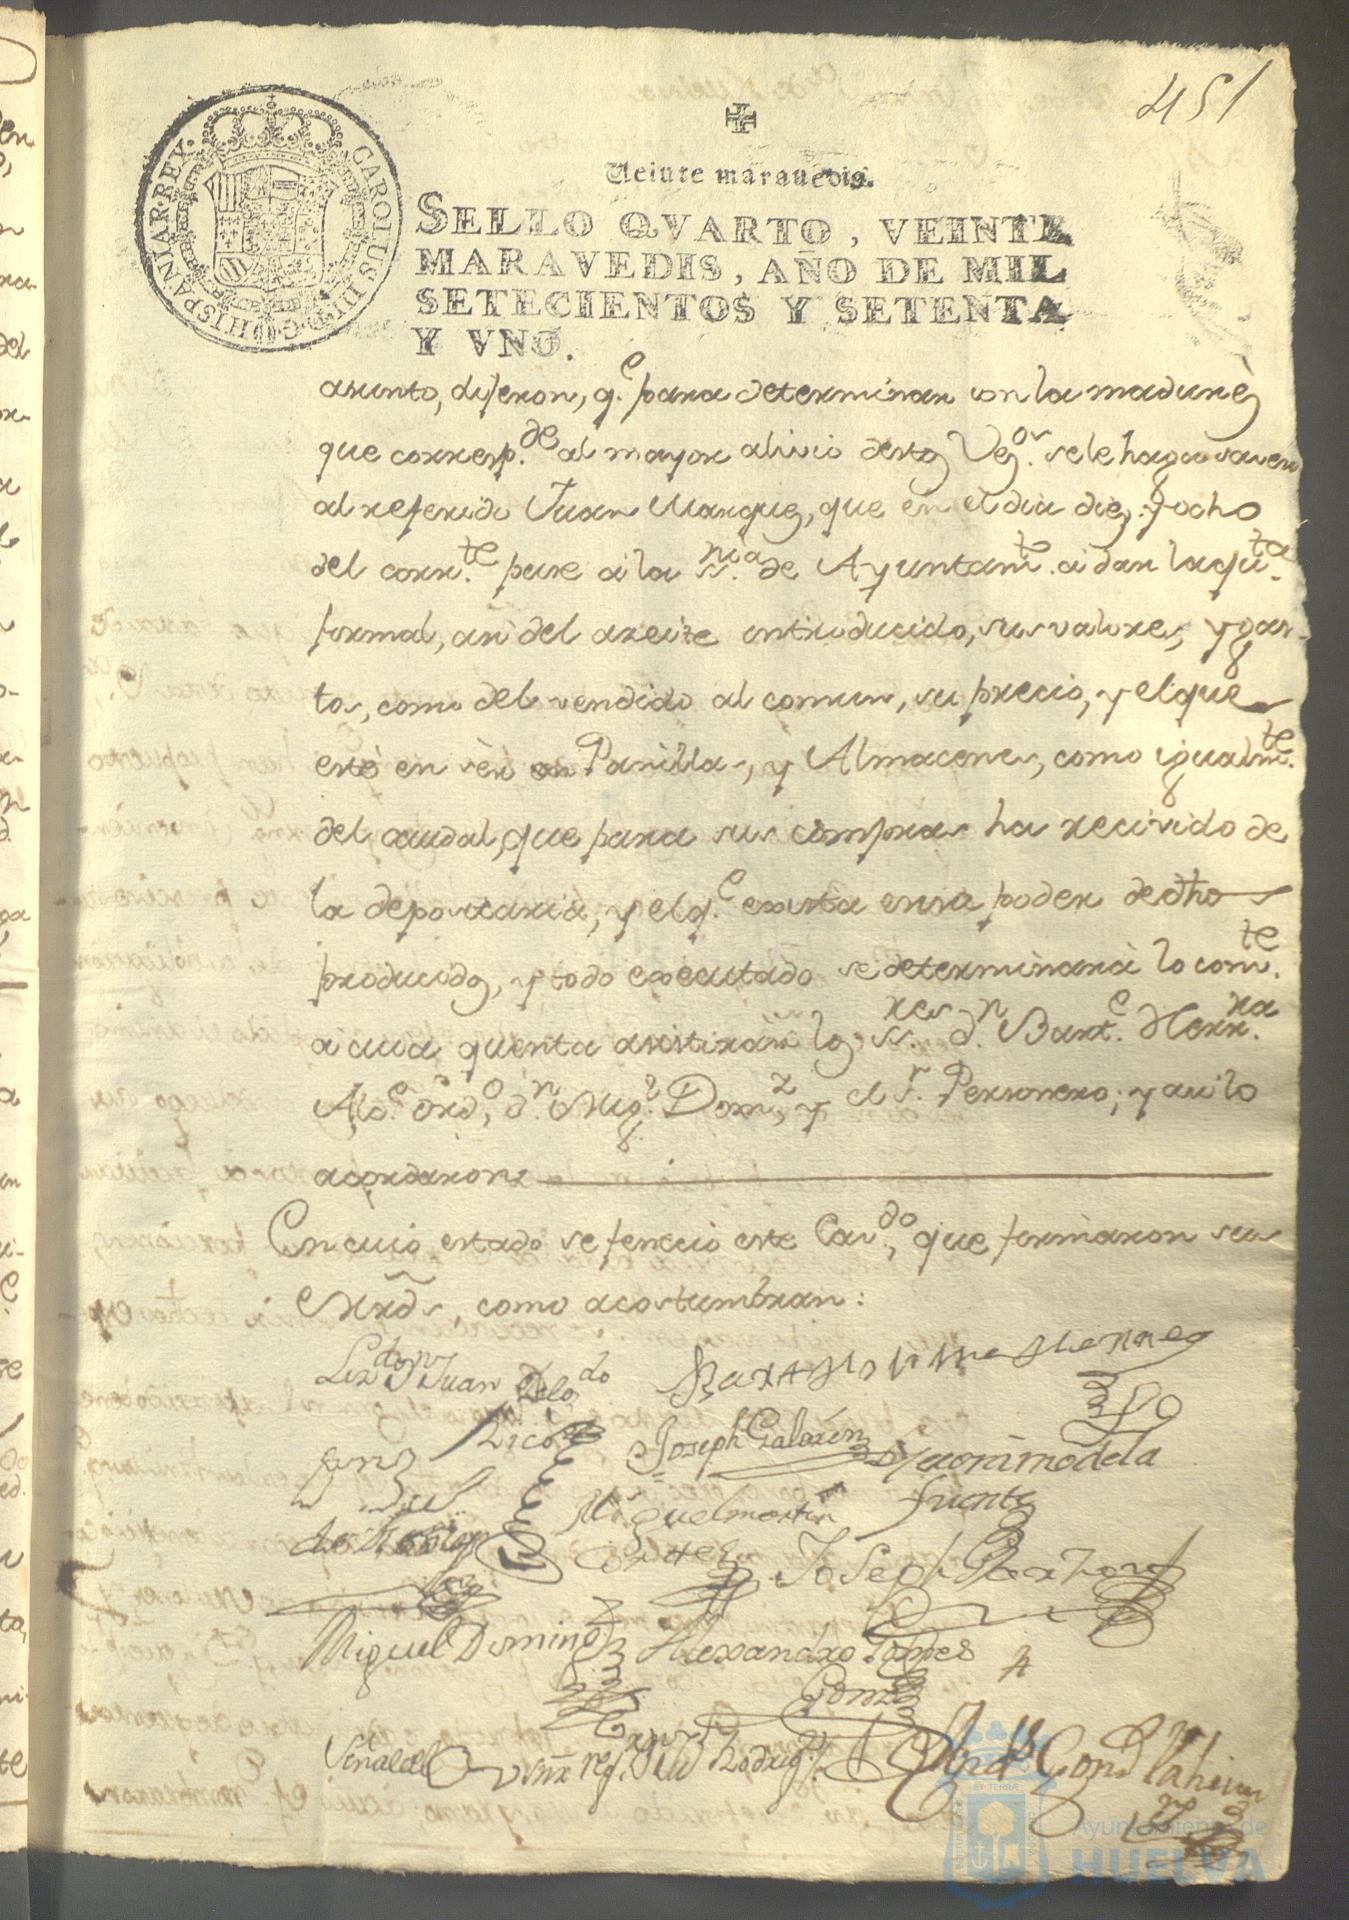 451
Veinte maravedis.
SELLO QVARTO, VEINTE
MARAVEDIS, AÑO DE MIL
SETECIENTOS Y SETENTA
Y VNO.
CAROLUS III D.G. HISPANIAR REX
asunto, dijeron, q.e para determinar con la madurèz
que corresp.de al mayor alivio destos Vez.os se le haga saver
al referido Juan Marquez, que en el dia diez, y ocho
del corr.te pase a la ss.nia de Ayuntam.te a dar la qu.ta
formal, asi del azeite introducido, sus valores, y gas-
tos, como del vendido al comun, su precio, y el que
esté en ser en Panillas, y Almacenes, como igualm.te
del caudal, que para sus compras ha recivido de
la depositaria, y el q.e exista en su poder de dho
producido, y todo executado se determinarà lo com.te
a cuia quenta asistiràn los ss.res d.n Bart.e Herr.ra
Alc.e ord.o, d.n Mig.l Dom.z, y el s.r Personero; y asi lo
acordaron
En cuio estado se feneció este Cav.do, que firmaron sus
Mrds, como acostumbran:
Lizdo dn Juan Delg.do
Rico
Bartolome Herrera
Joseph Galorin
Geronimo de la
fuente
Miguel martin
Joseph
Miguel Domingz
Alexandro Lopes
Gomz
Señal del
Ayuntamiento de
HUELVA